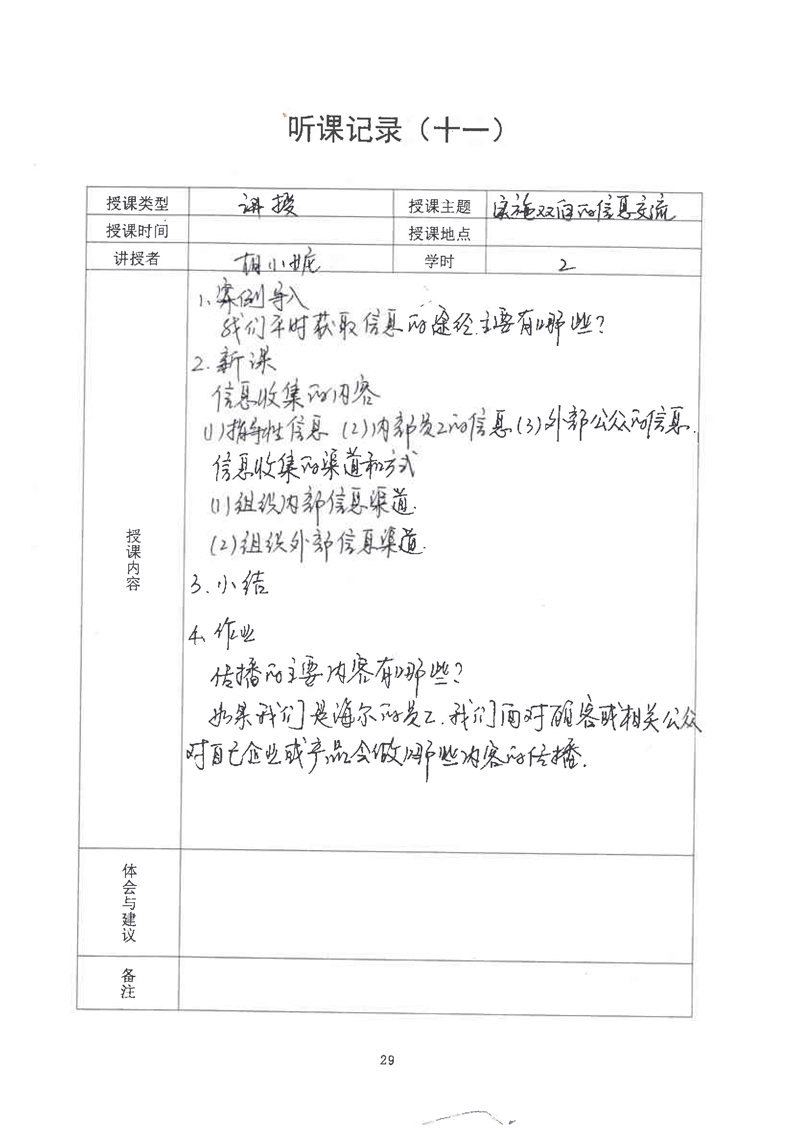 听课记录（十一）
授课类型 讲授 授课主题 实施双向的信息交流
授课时间 授课地点
讲授者 胡小 学时 2
授课内容
1、案例导入
我们平时获取信息的途经主要有哪些？
2.新课
信息收集的内容
(1)指导性信息 (2)内部员工的信息 (3)外部公众的信息.
信息收集的渠道和方式
(1)组织内部信息渠道.
(2)组织外部信息渠道.
3.小结
4、作业
传播的主要内容有哪些？
如果我们是海尔的员工.我们面对顾客或相关公众
对自己企业或产品会做哪些内容的传播.
体会与建议
备注
29